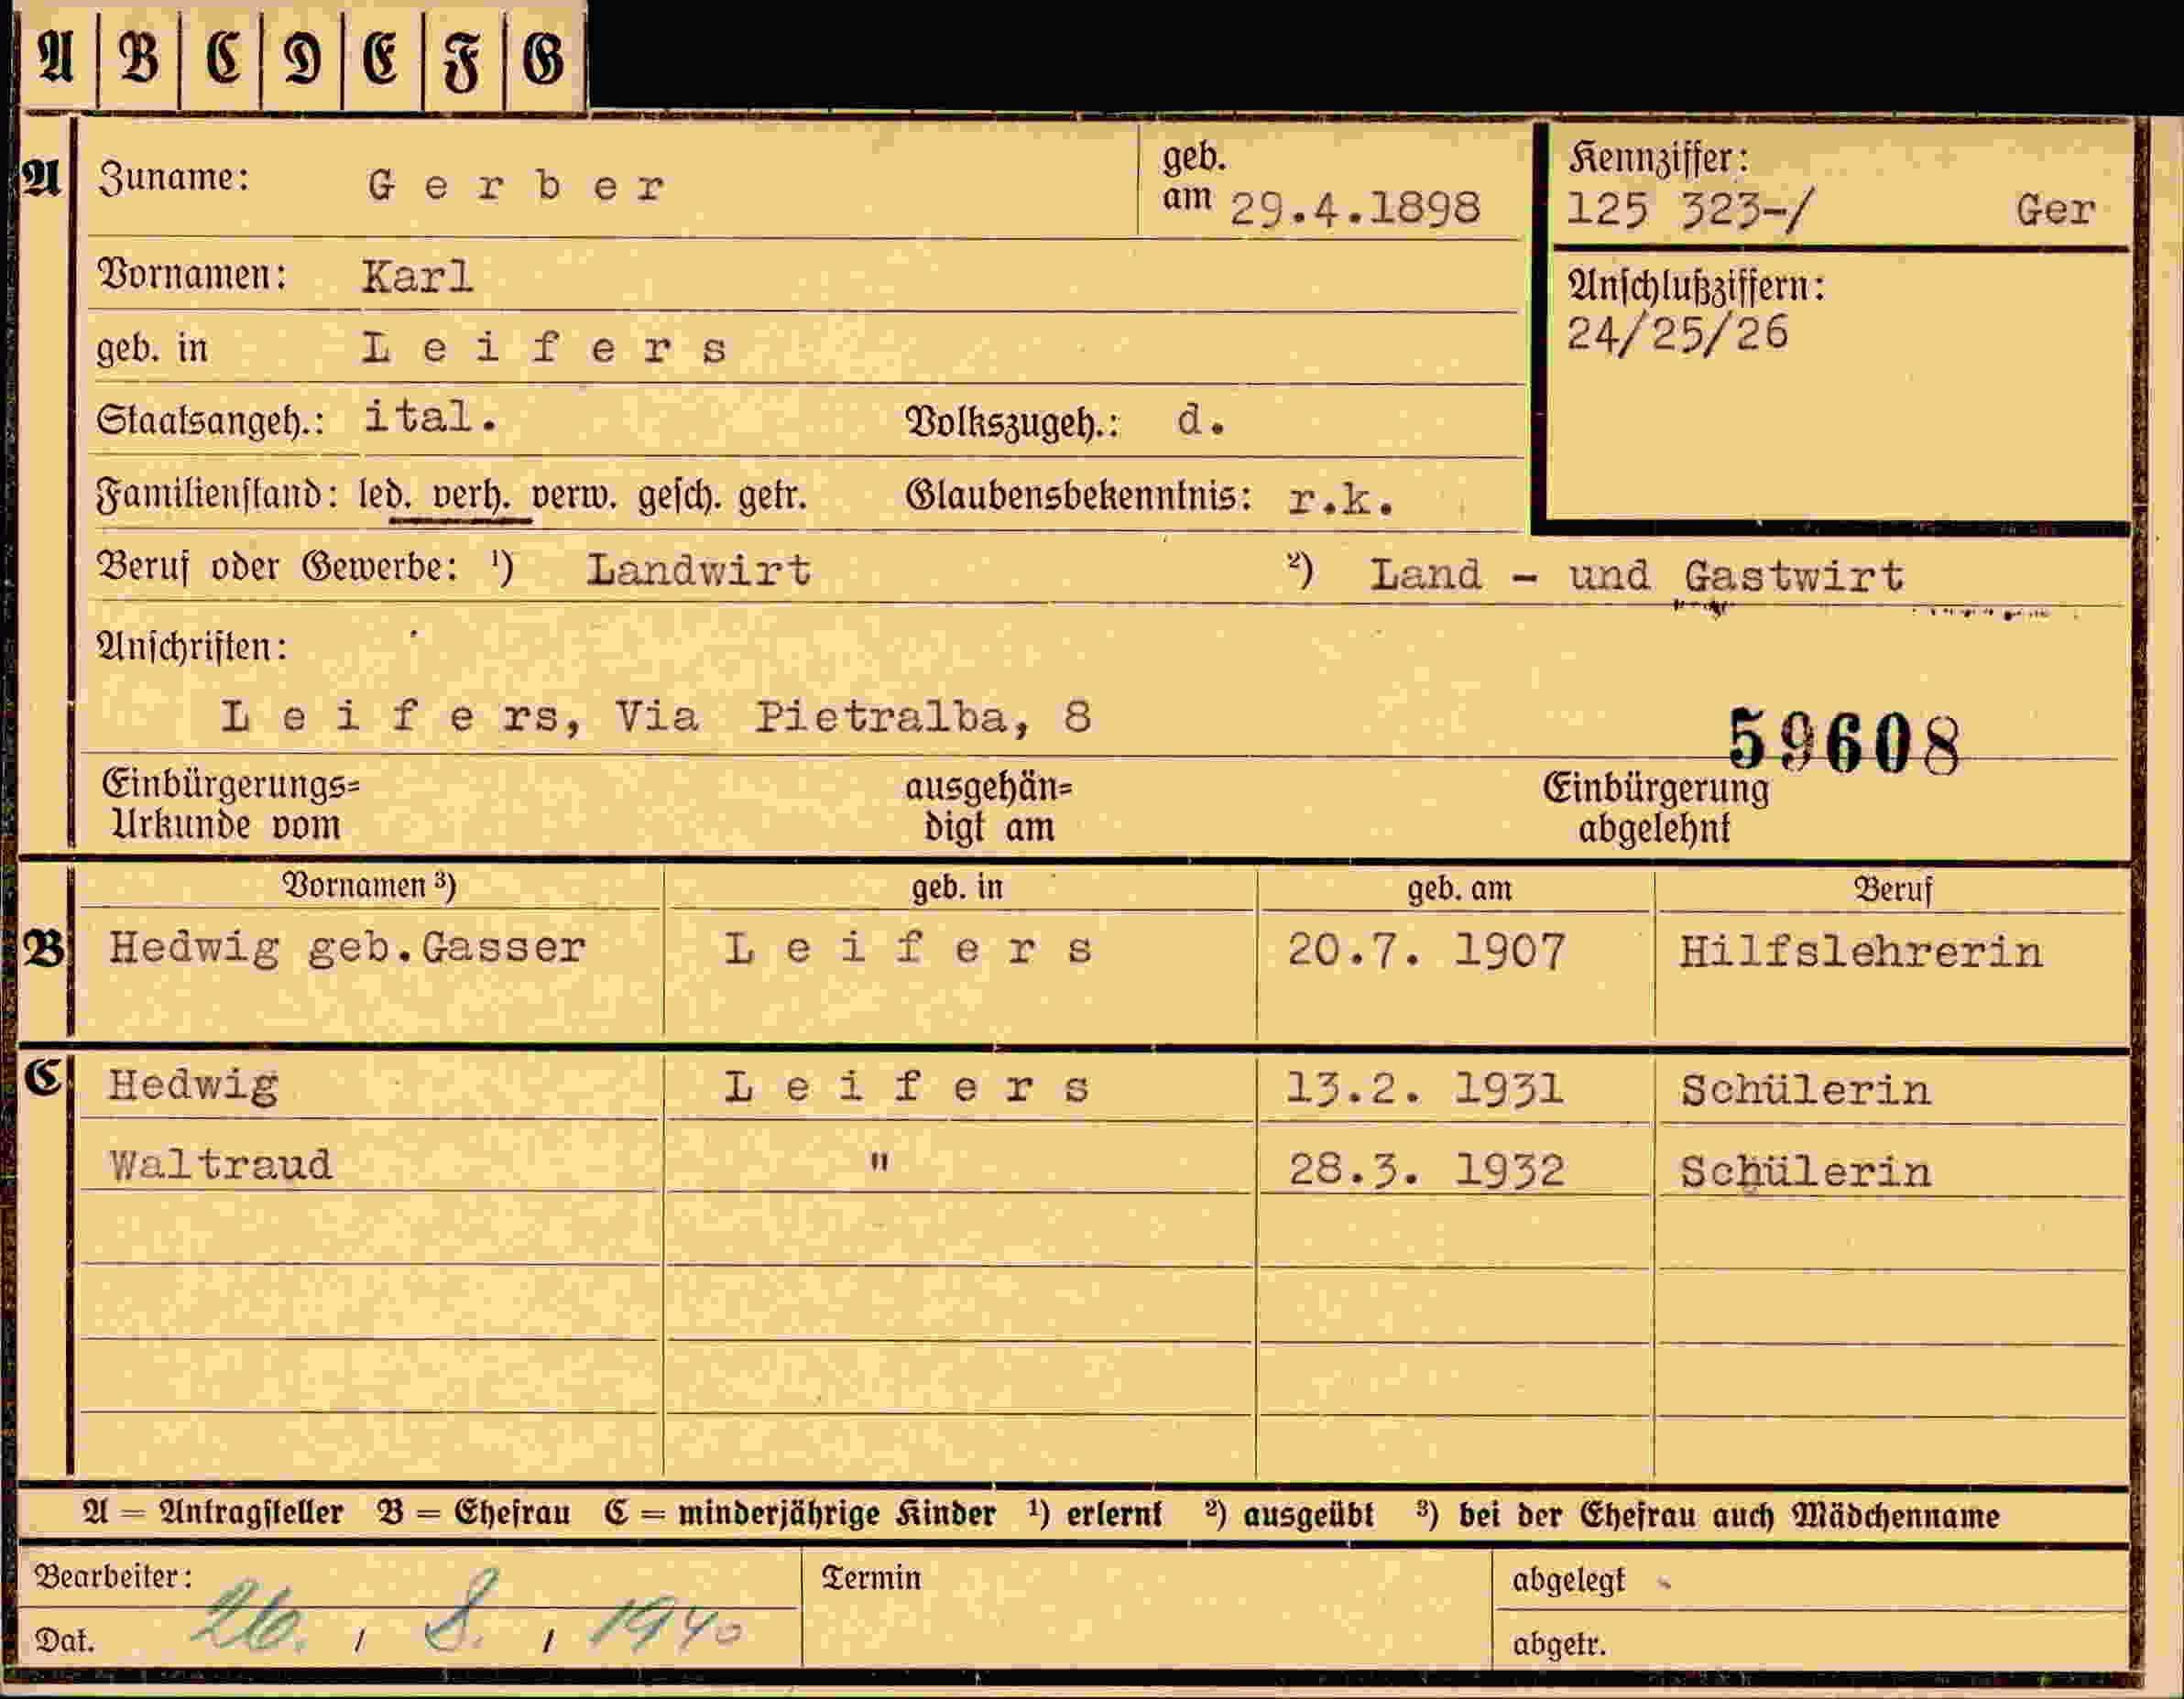 A B C D E F G
A Zuname: Gerber geb. am 29.4.1898 Kennziffer: 125 323-/ Ger
Vornamen: Karl Anschlußziffern: 24/25/26
geb. in Leifers
Staatsangeh.: ital. Volkszugeh.: d.
Familienstand: led. verh. verw. gesch. getr. Glaubensbekenntnis: r.k.
Beruf oder Gewerbe: ¹) Landwirt ²) Land - und Gastwirt
Anschriften:
Leifers, Via Pietralba, 8
59608
Einbürgerungs= ausgehän= Einbürgerung
Urkunde vom digt am abgelehnt
Vornamen ³) geb. in geb. am Beruf
B Hedwig geb.Gasser Leifers 20.7. 1907 Hilfslehrerin
C Hedwig Leifers 13.2. 1931 Schülerin
Waltraud " 28.3. 1932 Schülerin
A = Antragsteller B = Ehefrau C = minderjährige Kinder ¹) erlernt ²) ausgeübt ³) bei der Ehefrau auch Mädchenname
Bearbeiter: Termin abgelegt
Dat. 26. / 8. / 1940 abgetr.